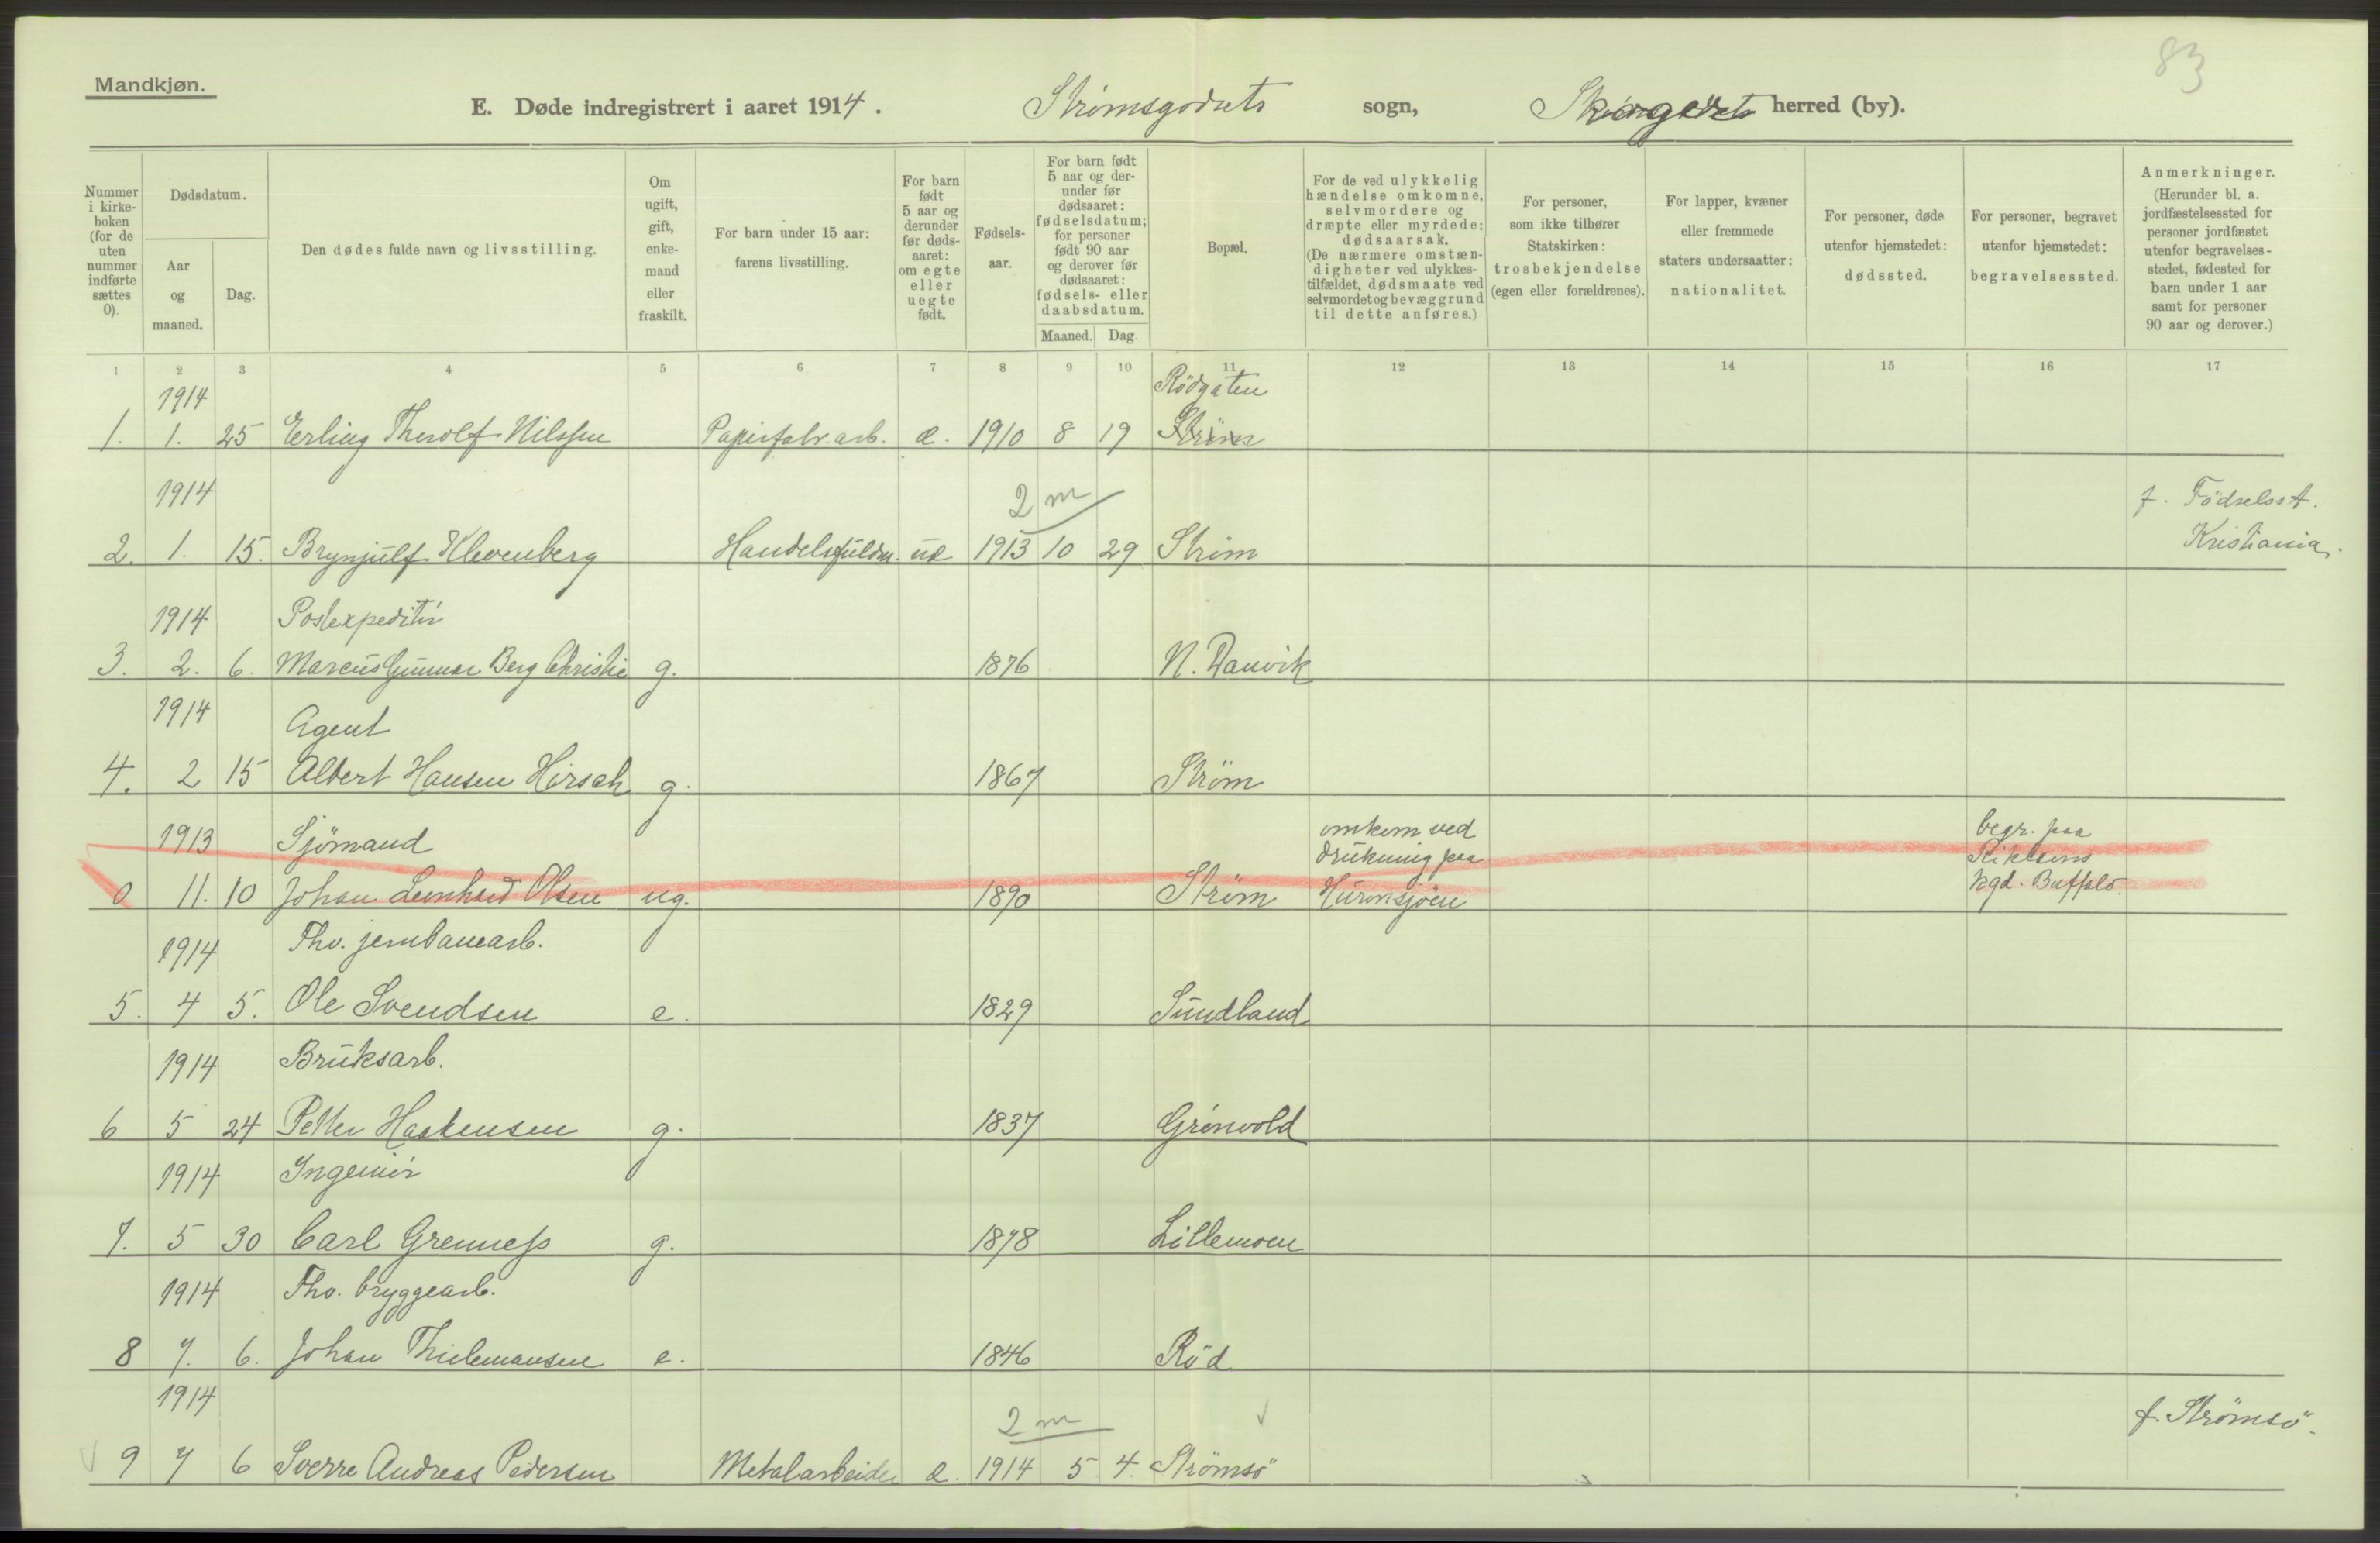 83
Mandkjøn.
E. Døde indregistrert i aaret 1914. Strømsgodsets sogn, herred (by).
Nummer i kirke-boken (for de uten nummer indførte sættes 0).
Dødsdatum.
Aar og maaned.
Dag.
Den dødes fulde navn og livsstilling.
Om ugift, gift, enke-mand eller fraskilt.
For barn under 15 aar: farens livsstilling.
For barn født 5 aar og derunder før døds-aaret: om egte eller uegte født.
Fødsels-aar.
For barn født 5 aar og der-under før dødsaaret: fødselsdatum; for personer født 90 aar og derover før dødsaaret: fødsels- eller daabsdatum.
Maaned. Dag.
Bopæl.
For de ved ulykkelig hændelse omkomne, selvmordere og dræpte eller myrdede: dødsaarsak. (De nærmere omstæn-digheter ved ulykkes-tilfældet, dødsmaate ved selvmord og bevæggrund til dette anføres.)
For personer, som ikke tilhører Statskirken: trosbekjendelse (egen eller forældrenes).
For lapper, kvæner eller fremmede staters undersaatter: nationalitet.
For personer, døde utenfor hjemstedet: dødssted.
For personer, begravet utenfor hjemstedet: begravelsessted.
Anmerkninger. (Herunder bl. a. jordfæstelsessted for personer jordfæstet utenfor begravelses-stedet, fødested for barn under 1 aar samt for personer 90 aar og derover.)
1 2 3 4 5 6 7 8 9 10 11 12 13 14 15 16 17
1914 Rödgaten
1. 1. 25 Erling Therolf Nilssen Papirfabr. arb. e. 1910 8 19 Ström
1914 2 m f. Födselsst.
2. 1. 15. Brynjulf Klevenberg Handelsfuldm. ue 1913 10 29 Strøm Kristiania.
1914 Postexpeditör
3. 2. 6. Marcus Gunnar Berg Christie g. 1876 N. Danvik
1914 Agent
4. 2 15 Albert Hansen Hirsch g. 1867 Strøm
1913 Sjömand omkom ved drukning paa begr. paa
0 11. 10 Johan Leonhard Olsen ug. 1890 Strøm Huronsjöen kgd. Buffalo.
1914 Fhv. jernbanearb.
5. 4 5. Ole Svendsen e. 1829 Sundland
1914 Bruksarb.
6 5 24 Petter Haakensen g. 1837 Grönvold
1914 Ingeniör
7. 5 30 Carl Grenness g. 1878 Lillemoen
1914 Fhv. bryggearb.
8 7. 6. Johan Thielemansen e. 1846 Röd
1914 2 m f. Strömsö.
9 7 6 Sverre Andreas Pedersen Metalarbeider e. 1914 5 4. Strömsö